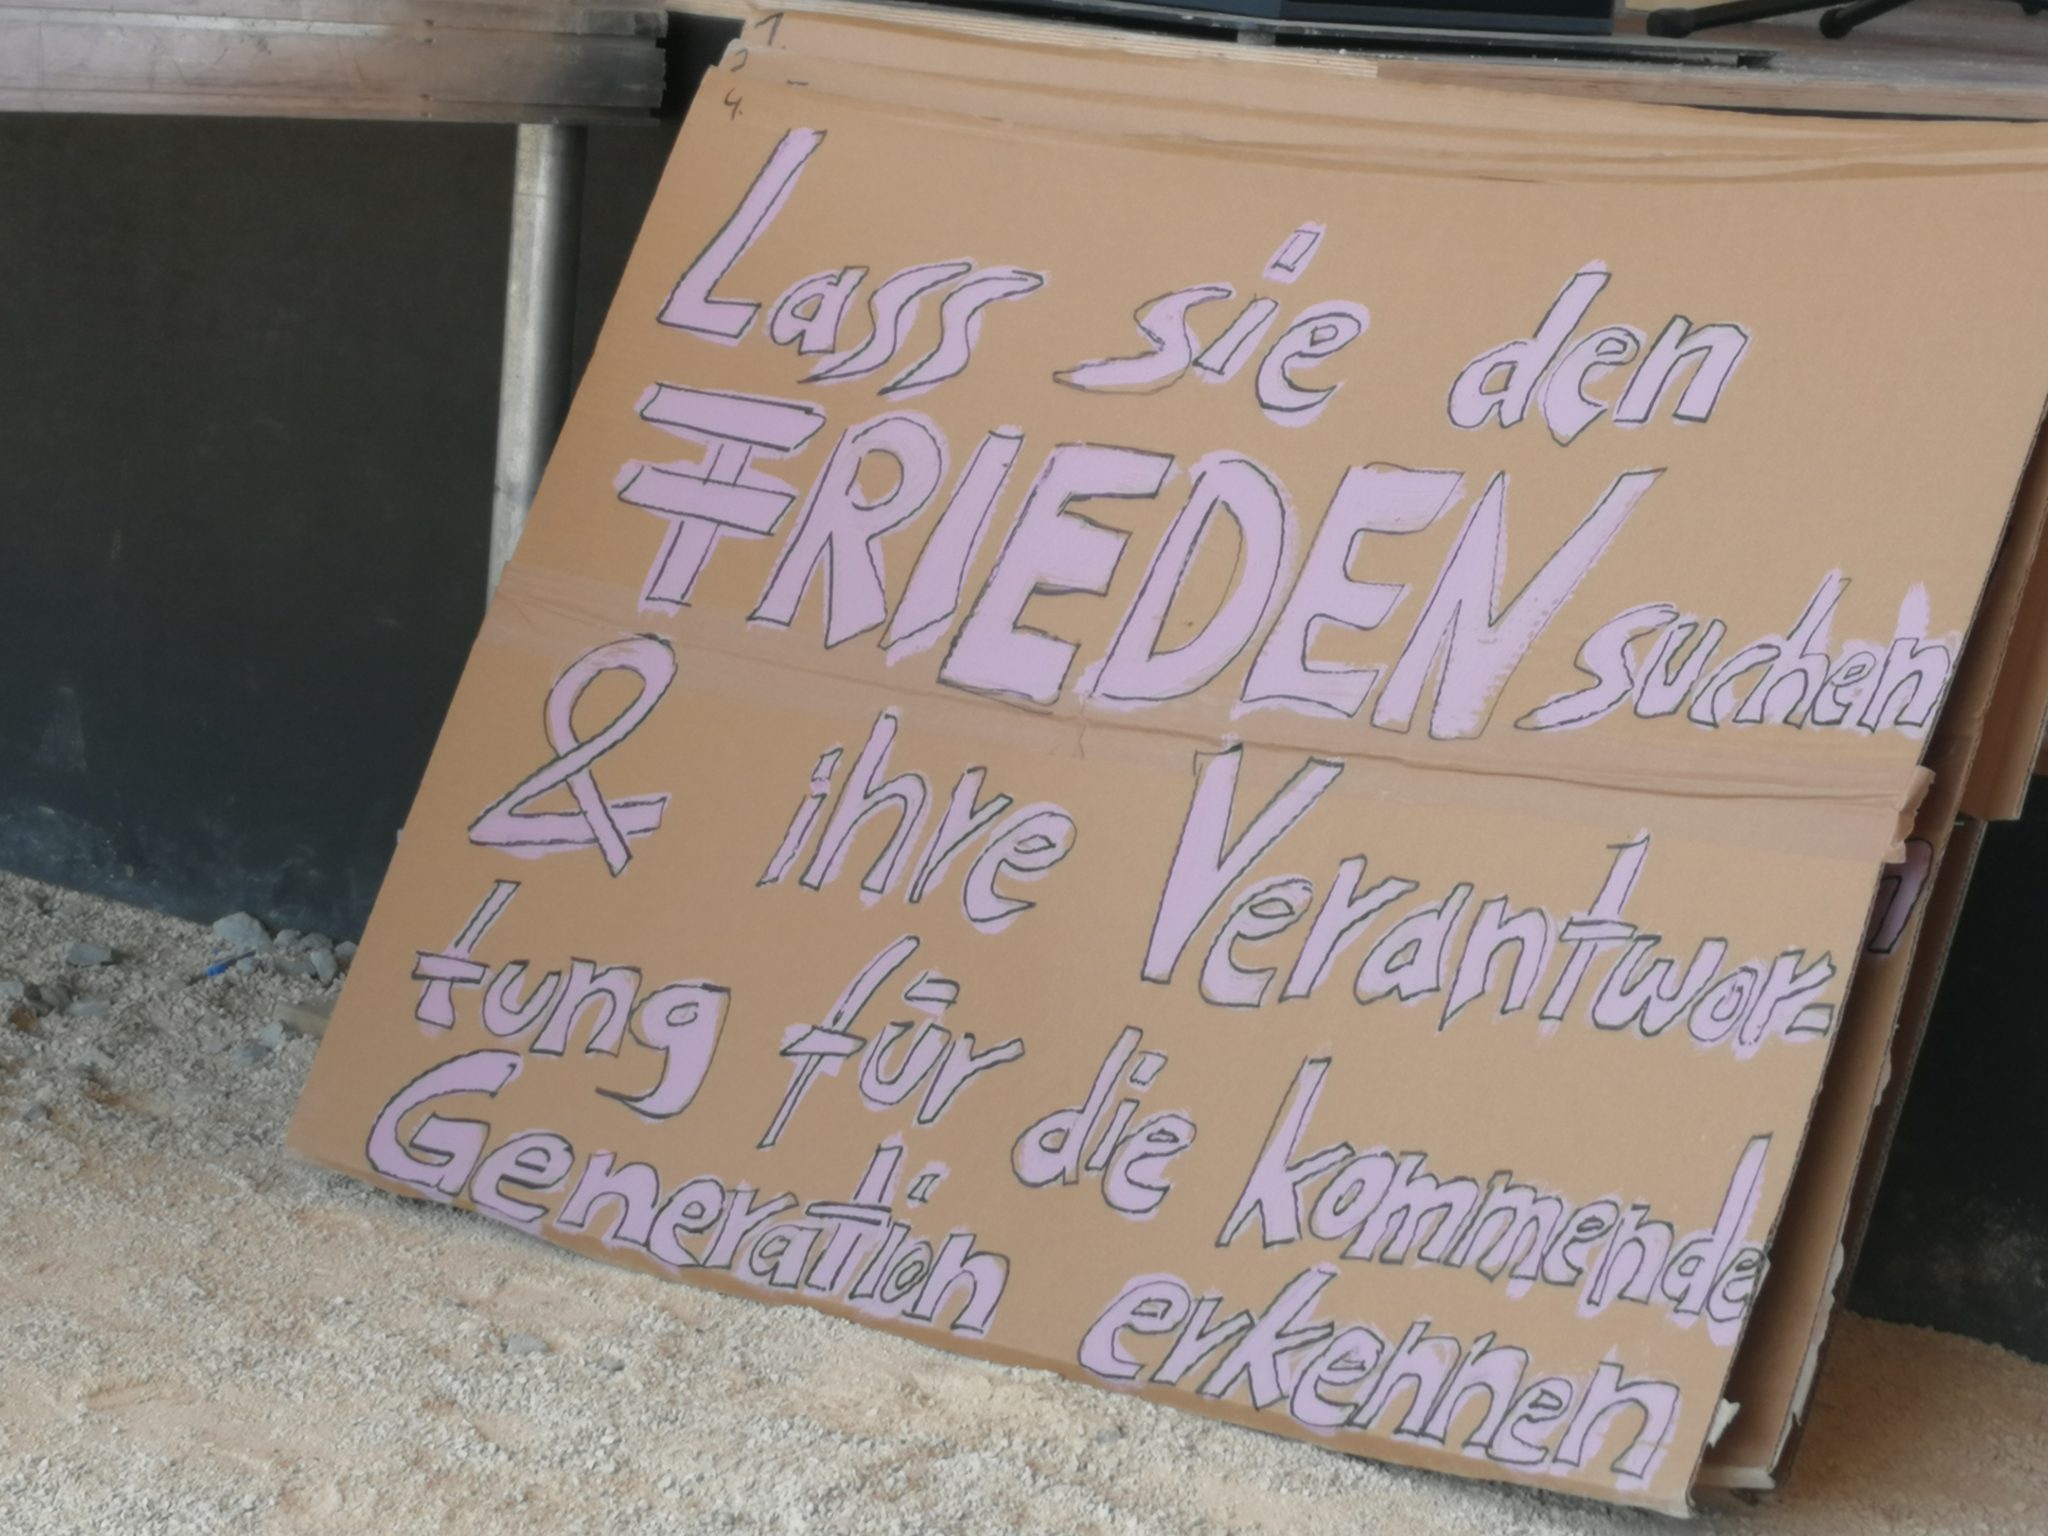 1.
2
4.
Lass sie den
FRIEDEN suchen
& ihre Verantwor-
tung für die kommende
Generation erkennen